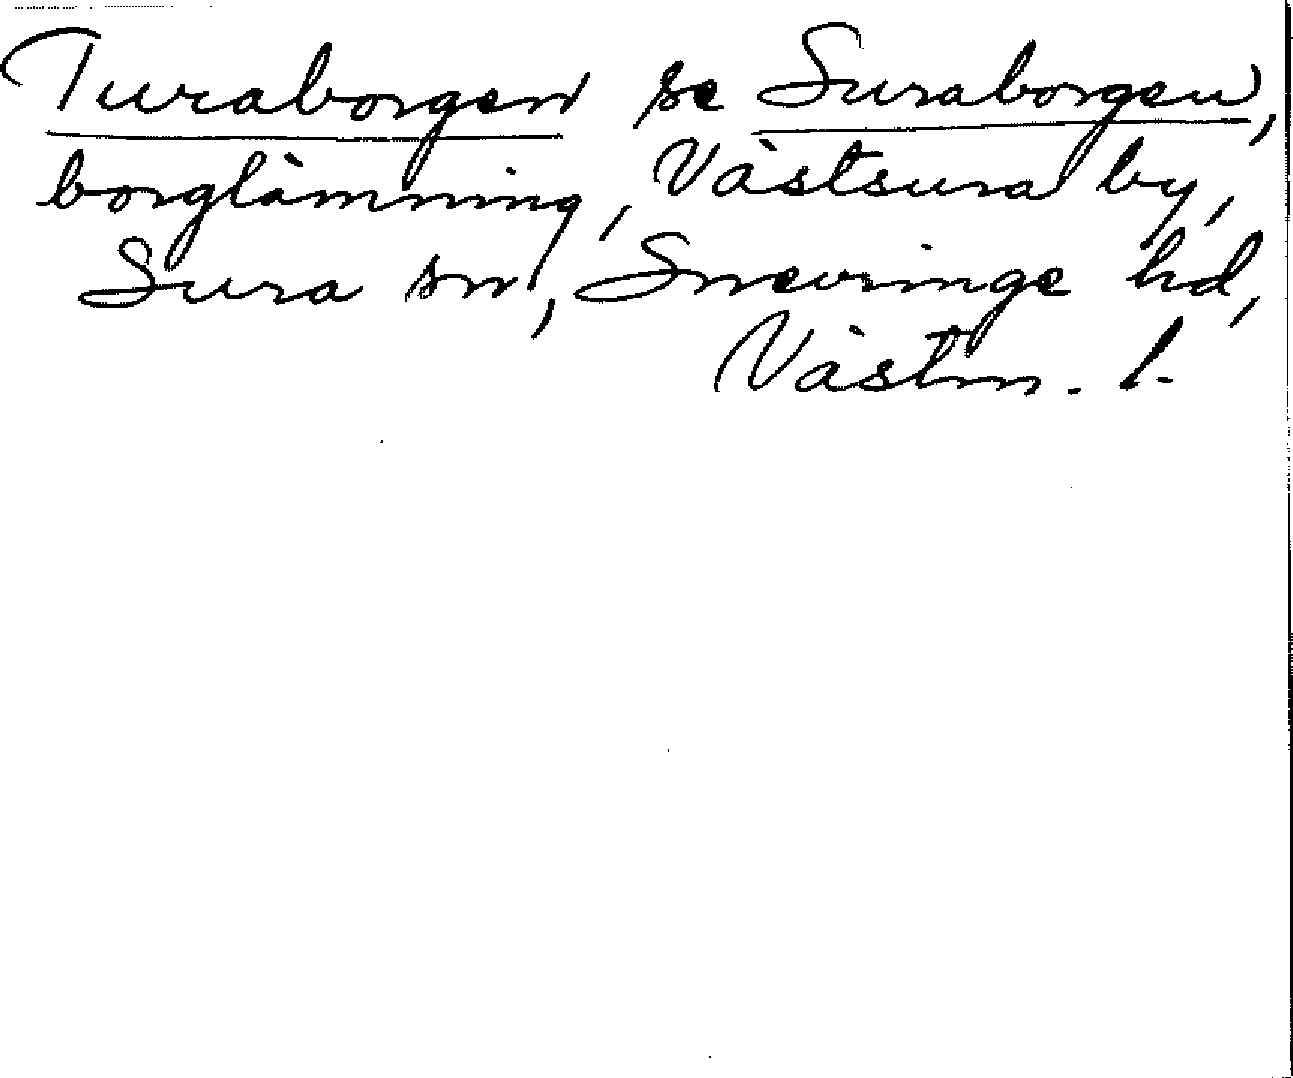 Turaborgen se Suraborgen,
borglämning, Västsura by,
Sura sn, Snevringe hd,
Västm. l.